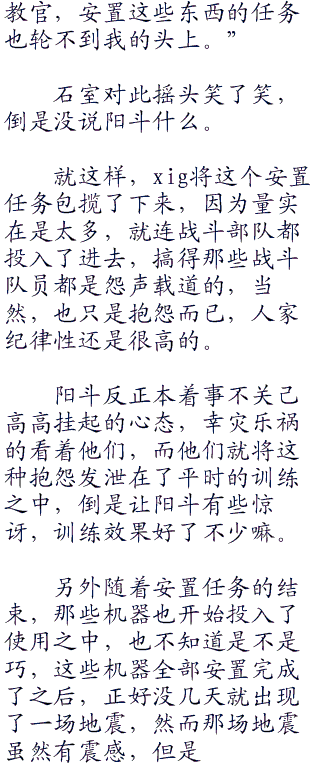 教官，安置这些东西的任务
也轮不到我的头上。”
石室对此摇头笑了笑，
倒是没说阳斗什么。
就这样，xig将这个安置
任务包揽了下来，因为量实
在是太多，就连战斗部队都
投入了进去，搞得那些战斗
队员都是怨声载道的，当
然，也只是抱怨而已，人家
纪律性还是很高的。
阳斗反正本着事不关己
高高挂起的心态，幸灾乐祸
的看着他们，而他们就将这
种抱怨发泄在了平时的训练
之中，倒是让阳斗有些惊
讶，训练效果好了不少嘛。
另外随着安置任务的结
束，那些机器也开始投入了
使用之中，也不知道是不是
巧，这些机器全部安置完成
了之后，正好没几天就出现
了一场地震，然而那场地震
虽然有震感，但是